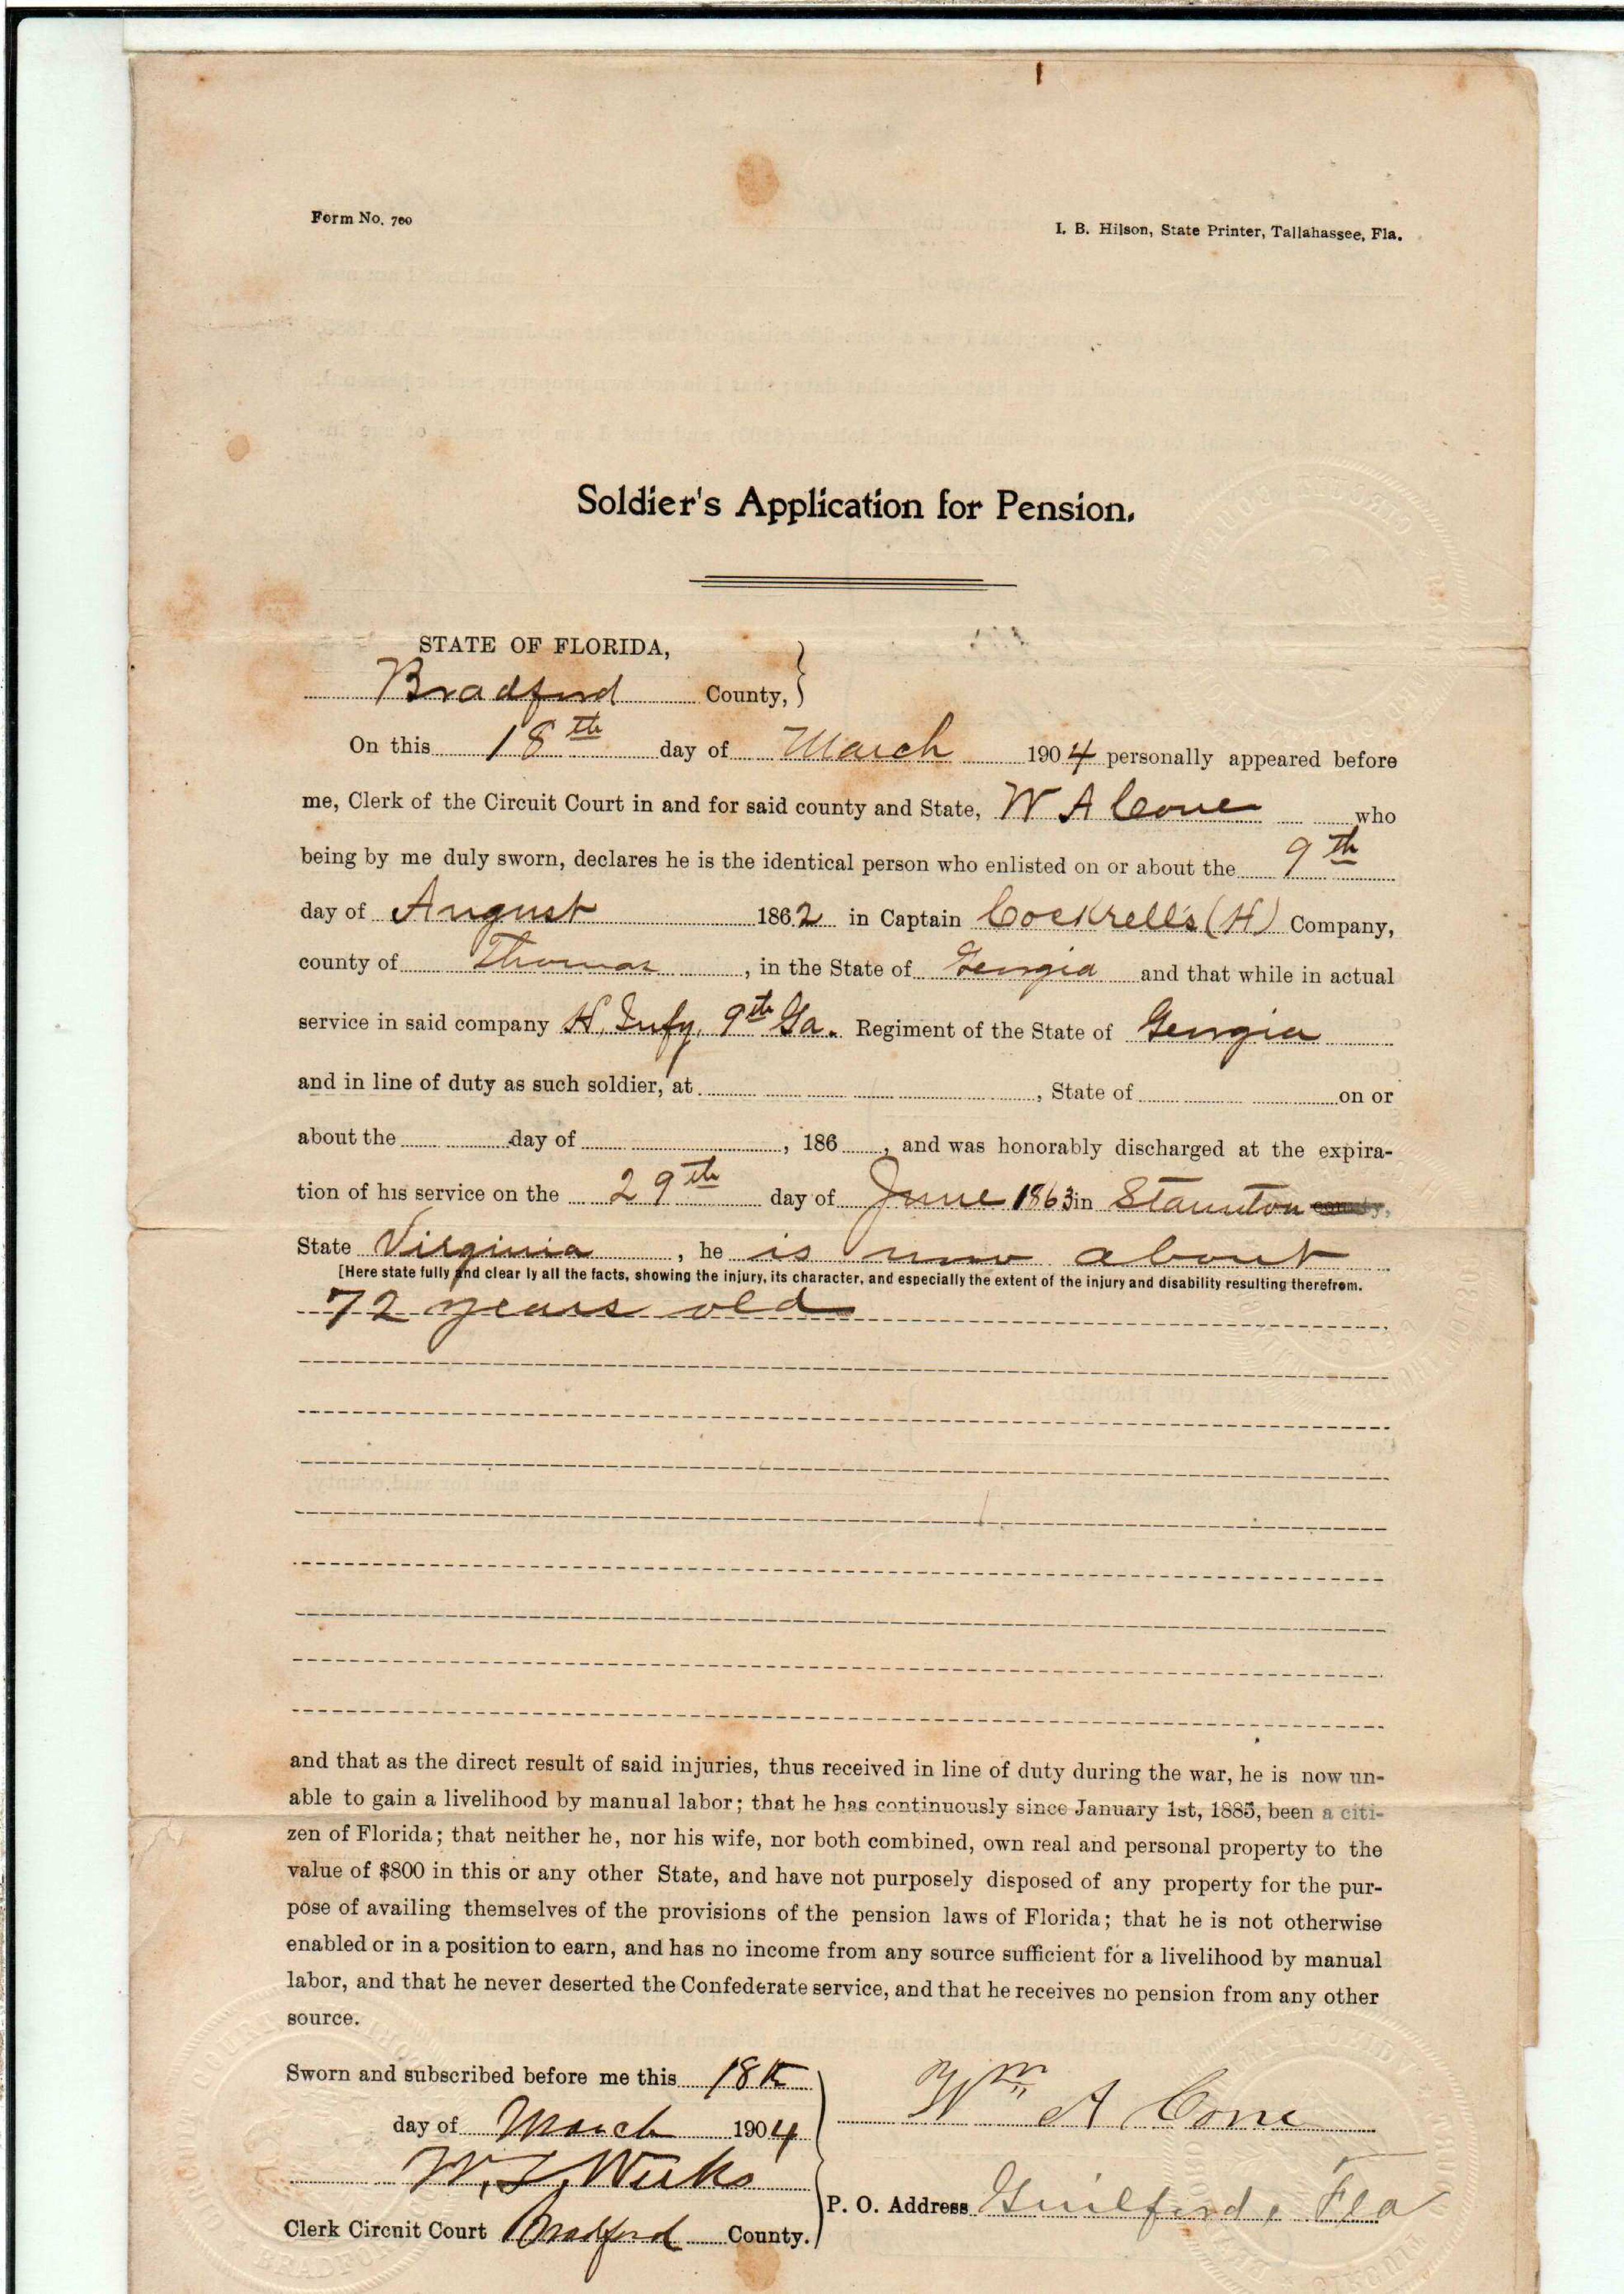 Form No. 700
I. B. Hilson, State Printer, Tallahassee, Fla.
Soldier's Application for Pension.
STATE OF FLORIDA,
Bradford County,
On this 18th day of March 1904 personally appeared before
me, Clerk of the Circuit Court in and for said county and State, W A Cone who
being by me duly sworn, declares he is the identical person who enlisted on or about the 9th
day of August 1862 in Captain Cockrell's (H) Company,
county of Thomas, in the State of Georgia and that while in actual
service in said company H, Infy, 9th Ga. Regiment of the State of Georgia
and in line of duty as such soldier, at , State of on or
about the day of , 186 , and was honorably discharged at the expira-
tion of his service on the 29th day of June 1863 in Staunton county,
State Virginia, he is now about
[Here state fully and clear ly all the facts, showing the injury, its character, and especially the extent of the injury and disability resulting therefrom.
72 years old
and that as the direct result of said injuries, thus received in line of duty during the war, he is now un-
able to gain a livelihood by manual labor; that he has continuously since January 1st, 1885, been a citi-
zen of Florida; that neither he, nor his wife, nor both combined, own real and personal property to the
value of $800 in this or any other State, and have not purposely disposed of any property for the pur-
pose of availing themselves of the provisions of the pension laws of Florida; that he is not otherwise
enabled or in a position to earn, and has no income from any source sufficient for a livelihood by manual
labor, and that he never deserted the Confederate service, and that he receives no pension from any other
source.
Sworn and subscribed before me this 18th
day of March 1904
Wm A Cone
W. T. Weeks
P. O. Address Guilford, Fla
Clerk Circuit Court Bradford County.